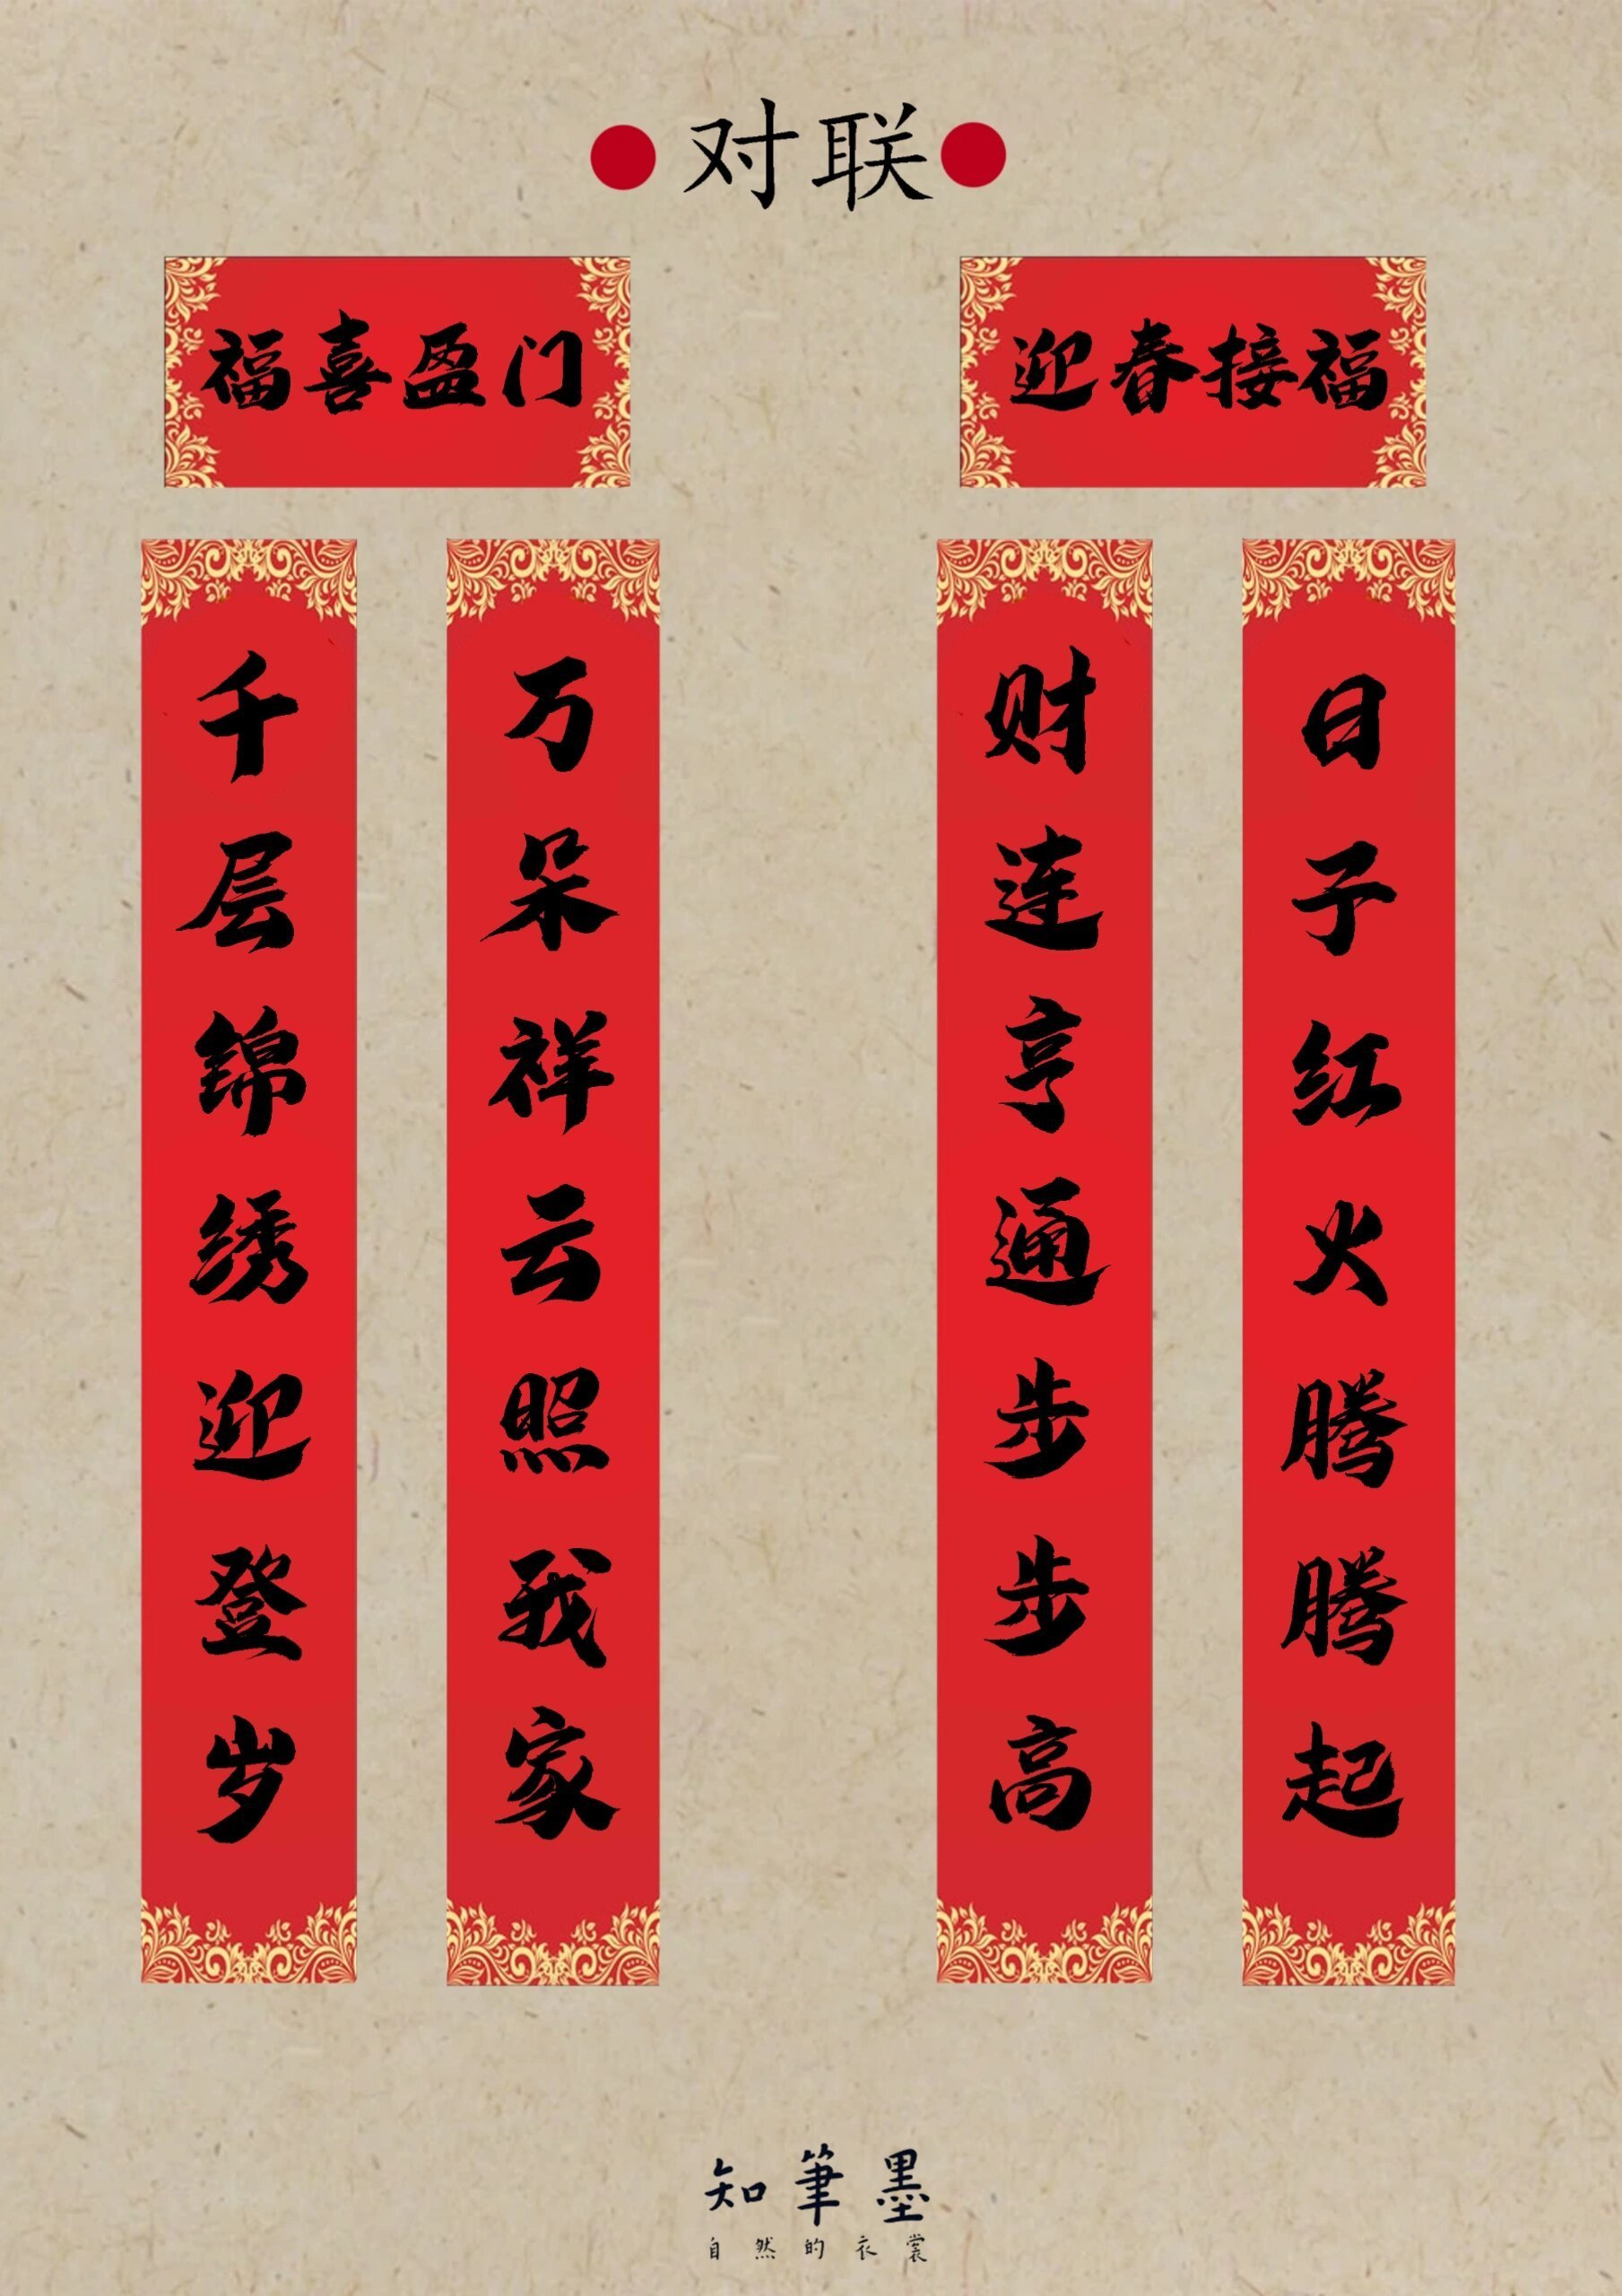 对联
福喜盈门
千层锦绣迎登岁
万呆祥云照我家
迎春接福
财连亨通步步高
日子红火腾腾起
知筆墨
自然的衣裳